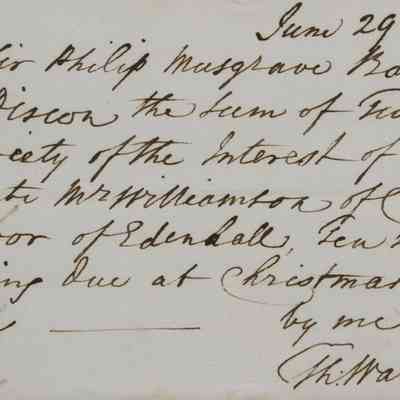 June 29
Sir Philip Musgrave Ba
Discon the Sum of
ciety of the Interest of
te Mr Williamson of C
oor of Edenhall, Ten
ing due at Christmas
by me
Th. Wa